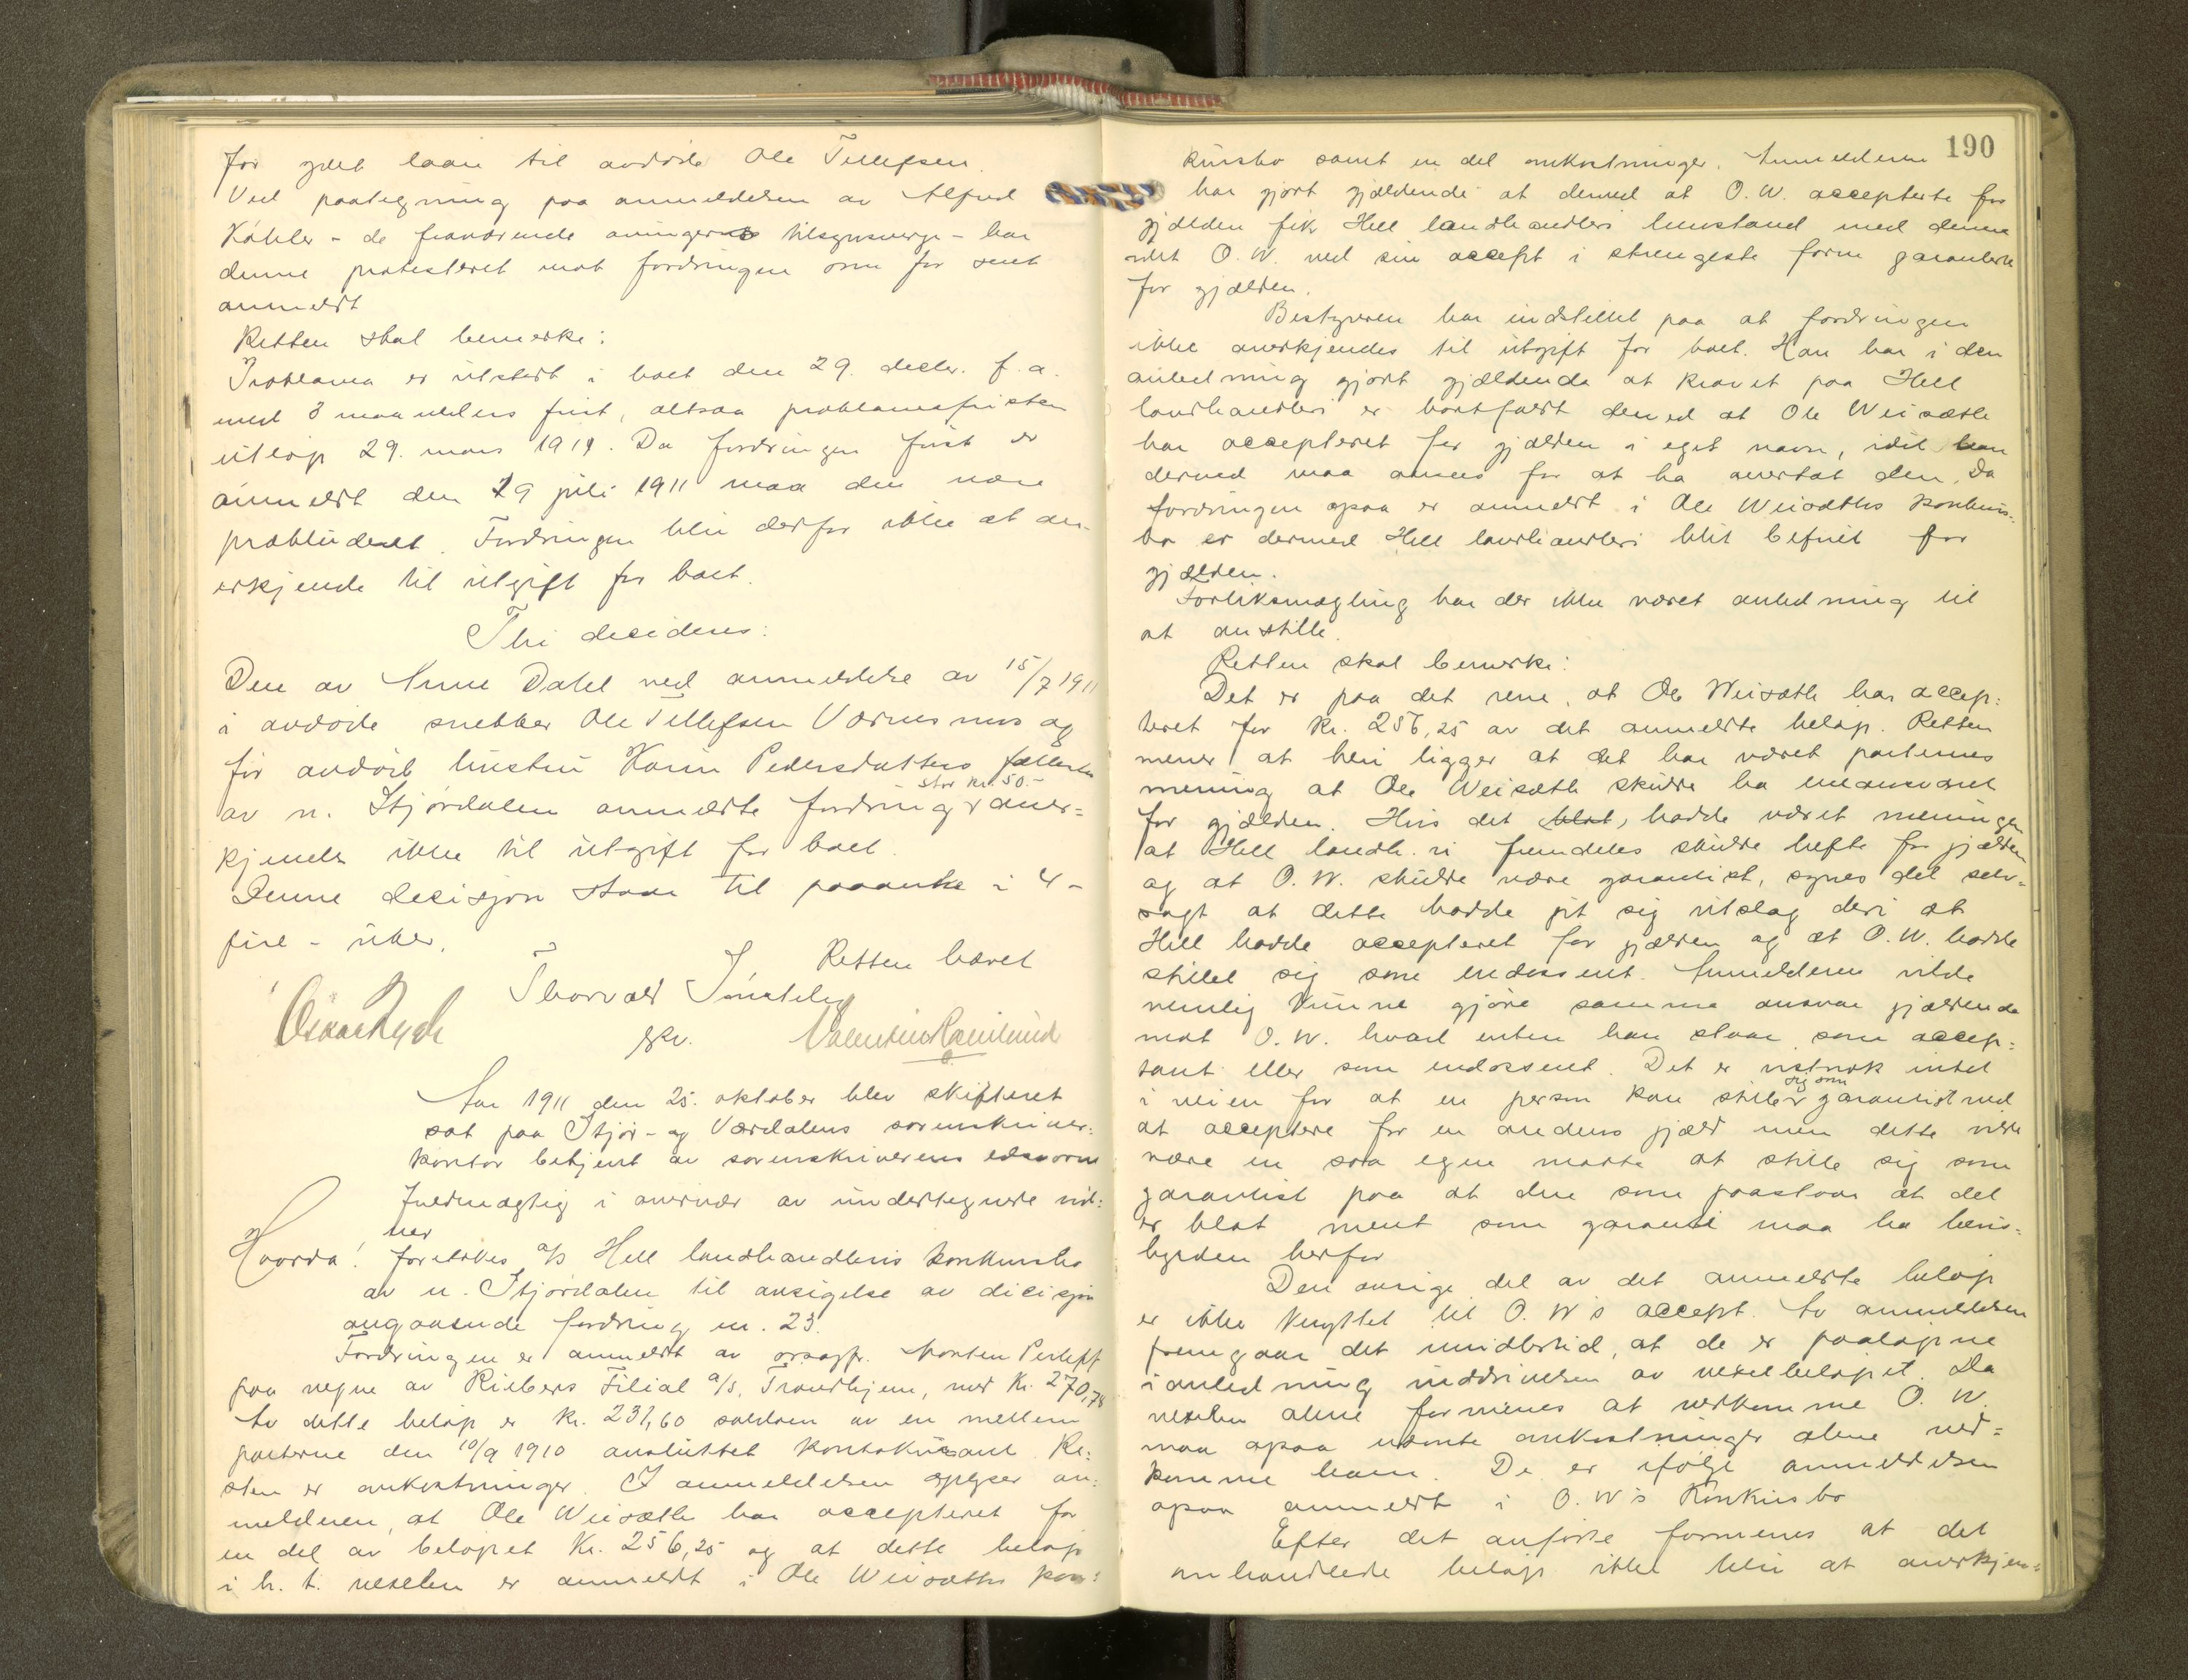 for ydet laan til avdøde Ole Tellefsen.
Ved paategning paa anmeldelsen av Alfred
Köhler - de fraværende arvingers tilsynsverge - har
denne protesteret mot fordringen som for sent
anmeldt
Retten skal bemerke:
Proklama er utstedt i boet den 29. decbr. f. a.
med 3 maaneders frist, altsaa proklamafristen
utløp 29. mars 1911. Da fordringen først er
anmeldt den 29 juli 1911 maa den være
prækluderet. Fordringen blir derfor ikke at an-
erkjende til utgift for boet.
Thi decideres:
Den av Anne Dahl ved anmeldelse av 15/7 1911
i avdøde snekker Ole Tellefsen Værnesmos og
før avdøde hustru Karin Pedersdatters fællesbo
stor kr. 50.-
av n. Stjørdalen anmeldte fordring aner=
kjendes ikke til utgift for boet.
Denne decisjon staar til paaanke i 4 -
fire - uker.
Retten hævet
Thorvald
skr.
Aar 1911 den 25. oktober blev skifteret
sat paa Stjør- og Værdalens sorenskriver=
kontor betjent av sorenskriverens edsvorne
fuldmægtig i overvær av undertegnede vid=
ner
Hvorda! foretokes a/s Hell landhandleris konkursbo
av n. Stjørdalen til avsigelse av decisjon
angaaende fordring nr. 23.
Fordringen er anmeldt av orsagf. Morten
paa vegne av Riebers Filial a/s, Trondhjem, med kr. 270,78
Av dette beløp er kr. 231,60 saldoen av en mellem
parterne den 10/9 1910 avsluttet kontokurant. Re=
sten er omkostninger. I anmeldelsen oplyser an=
melderen, at Ole Weisæth har accepteret for
en del av beløpet kr. 256,25 og at dette beløp
i h. t. vexelen er anmeldt i Ole Weisæths kon=
190
kursbo samt en del omkostninger. Anmelderen
har gjort gjældende at dermed at O. W. accepterte for
gjælden fik Hell landhandleri henstand med denne
idet O. W. ved sin accept i strengeste form garanterte
for gjælden.
Bestyreren har indstillet paa at fordringen
ikke anerkjendes til utgift for boet. Han har i den
anledning gjort gjældende at kravet paa Hell
landhandleri er bortfaldt derved at Ole Weisæth
har accepteret for gjælden i eget navn, idet han
dermed maa ansees for at ha overtat den. Da
fordringen ogsaa er anmeldt i Ole Weisæths konkurs-
bo er dermed Hell landhandleri blit befriet for
gjælden.
Forliksmægling har der ikke været anledning til
at anstille.
Retten skal bemerke:
Det er paa det rene, at Ole Weisæth har accep=
teret for kr. 256,25 av det anmeldte beløp. Retten
mener at heri ligger at det har været parternes
mening at Ole Weisæth skulde ha eneansvaret
for gjælden. Hvis det blot, hadde været meningen
at Hell landh.ri fremdeles skulde hefte for gjælden
og at O. W. skulde være garantist, synes det selv-
sagt at dette hadde git sig utslag deri at
Hell hadde accepteret for gjælden og at O. W. hadde
stillet sig som endossent. Anmelderen vilde
nemlig kunne gjøre samme ansvar gjældende
mot O. W. hvad enten han staar som accep=
tant eller som endossent. Det er vistnok intet
sig som
i veien for at en person kan stille garantist ved
at acceptere for en andens gjæld men dette vilde
være en saa egen maate at stille sig som
garantist paa at den som paastaar at det
er blot ment som garanti maa ha bevis-
byrden herfor
Den øvrige del av det anmeldte beløp
er ikke knyttet til O. W's accept. Av anmeldelsen
fremgaar det imidlertid, at de er paaløpne
i anledning inddrivelsen av vexelbeløpet. Da
vexelen alene formenes at vedkomme O. W.
maa ogsaa disse omkostninger alene ved=
komme ham. De er ifølge anmeldelsen
ogsaa anmeldt i O. W's konkursbo
Efter det anførte formenes at det
omhandlede beløp ikke blir at anerkjen=